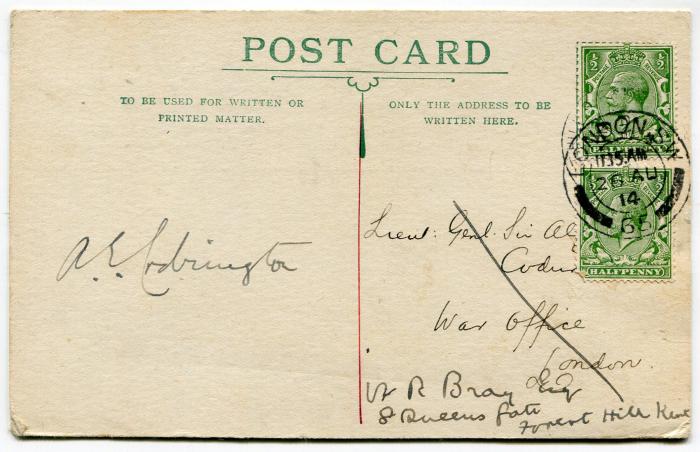 POST CARD
TO BE USED FOR WRITTEN OR
PRINTED MATTER.
ONLY THE ADDRESS TO BE
WRITTEN HERE.
½ ½
LONDON
11.35 AM
26 AU
14
HALFPENNY
A. E. Codrington
Lieut: Genl. Sir Al
Codri
War Office
London.
W R Bray Esq
8 Queens Gate
Forest Hill Kent